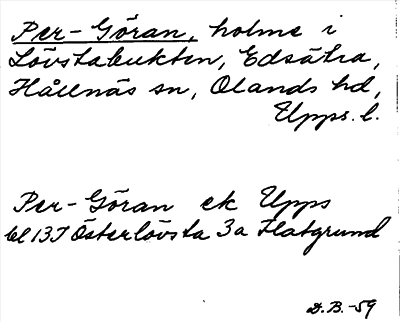 Per-Göran, holme i
Lövstabukten, Edsätra,
Hållnäs sn, Olands hd,
Upps. l.
Per-Göran ek Upps
bl 13J Österlövsta 3a Flatgrund
D.B.-59